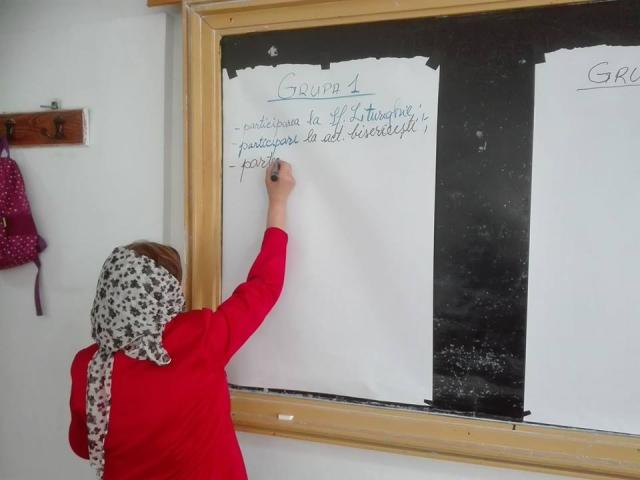 GRUPA 1
- participarea la Sf. Liturghie;
- participare la act. bisericești;
- parti
GRU